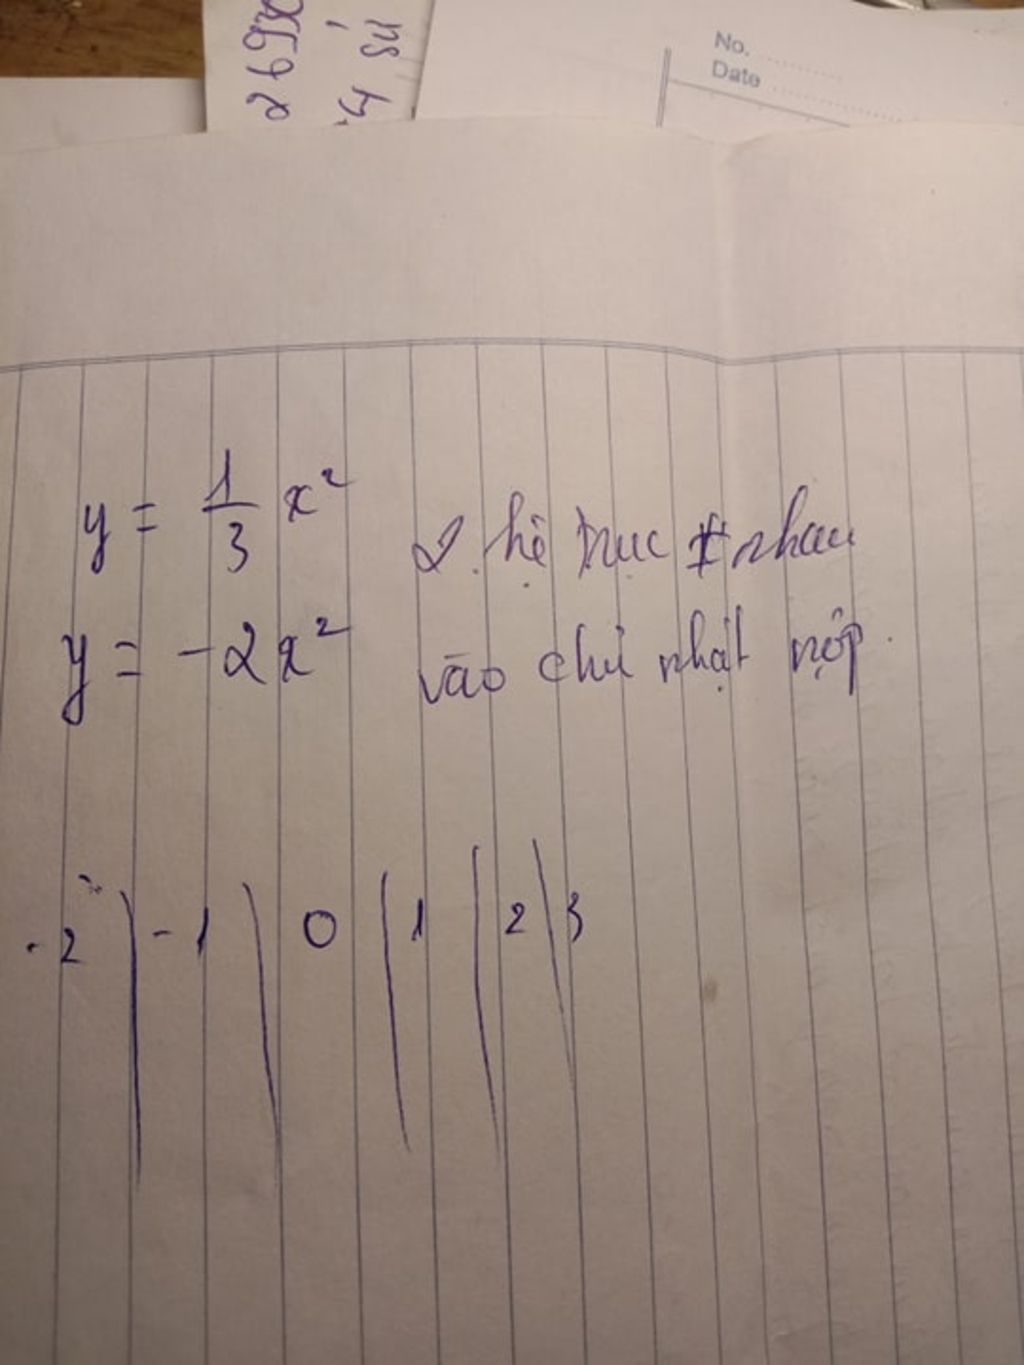 26930
4 sử
No.
Date
y = 1/3 x²
2 hệ trục ≠ nhau
y = -2x²
vào chủ nhật nộp.
-2 | -1 | 0 | 1 | 2 | 3